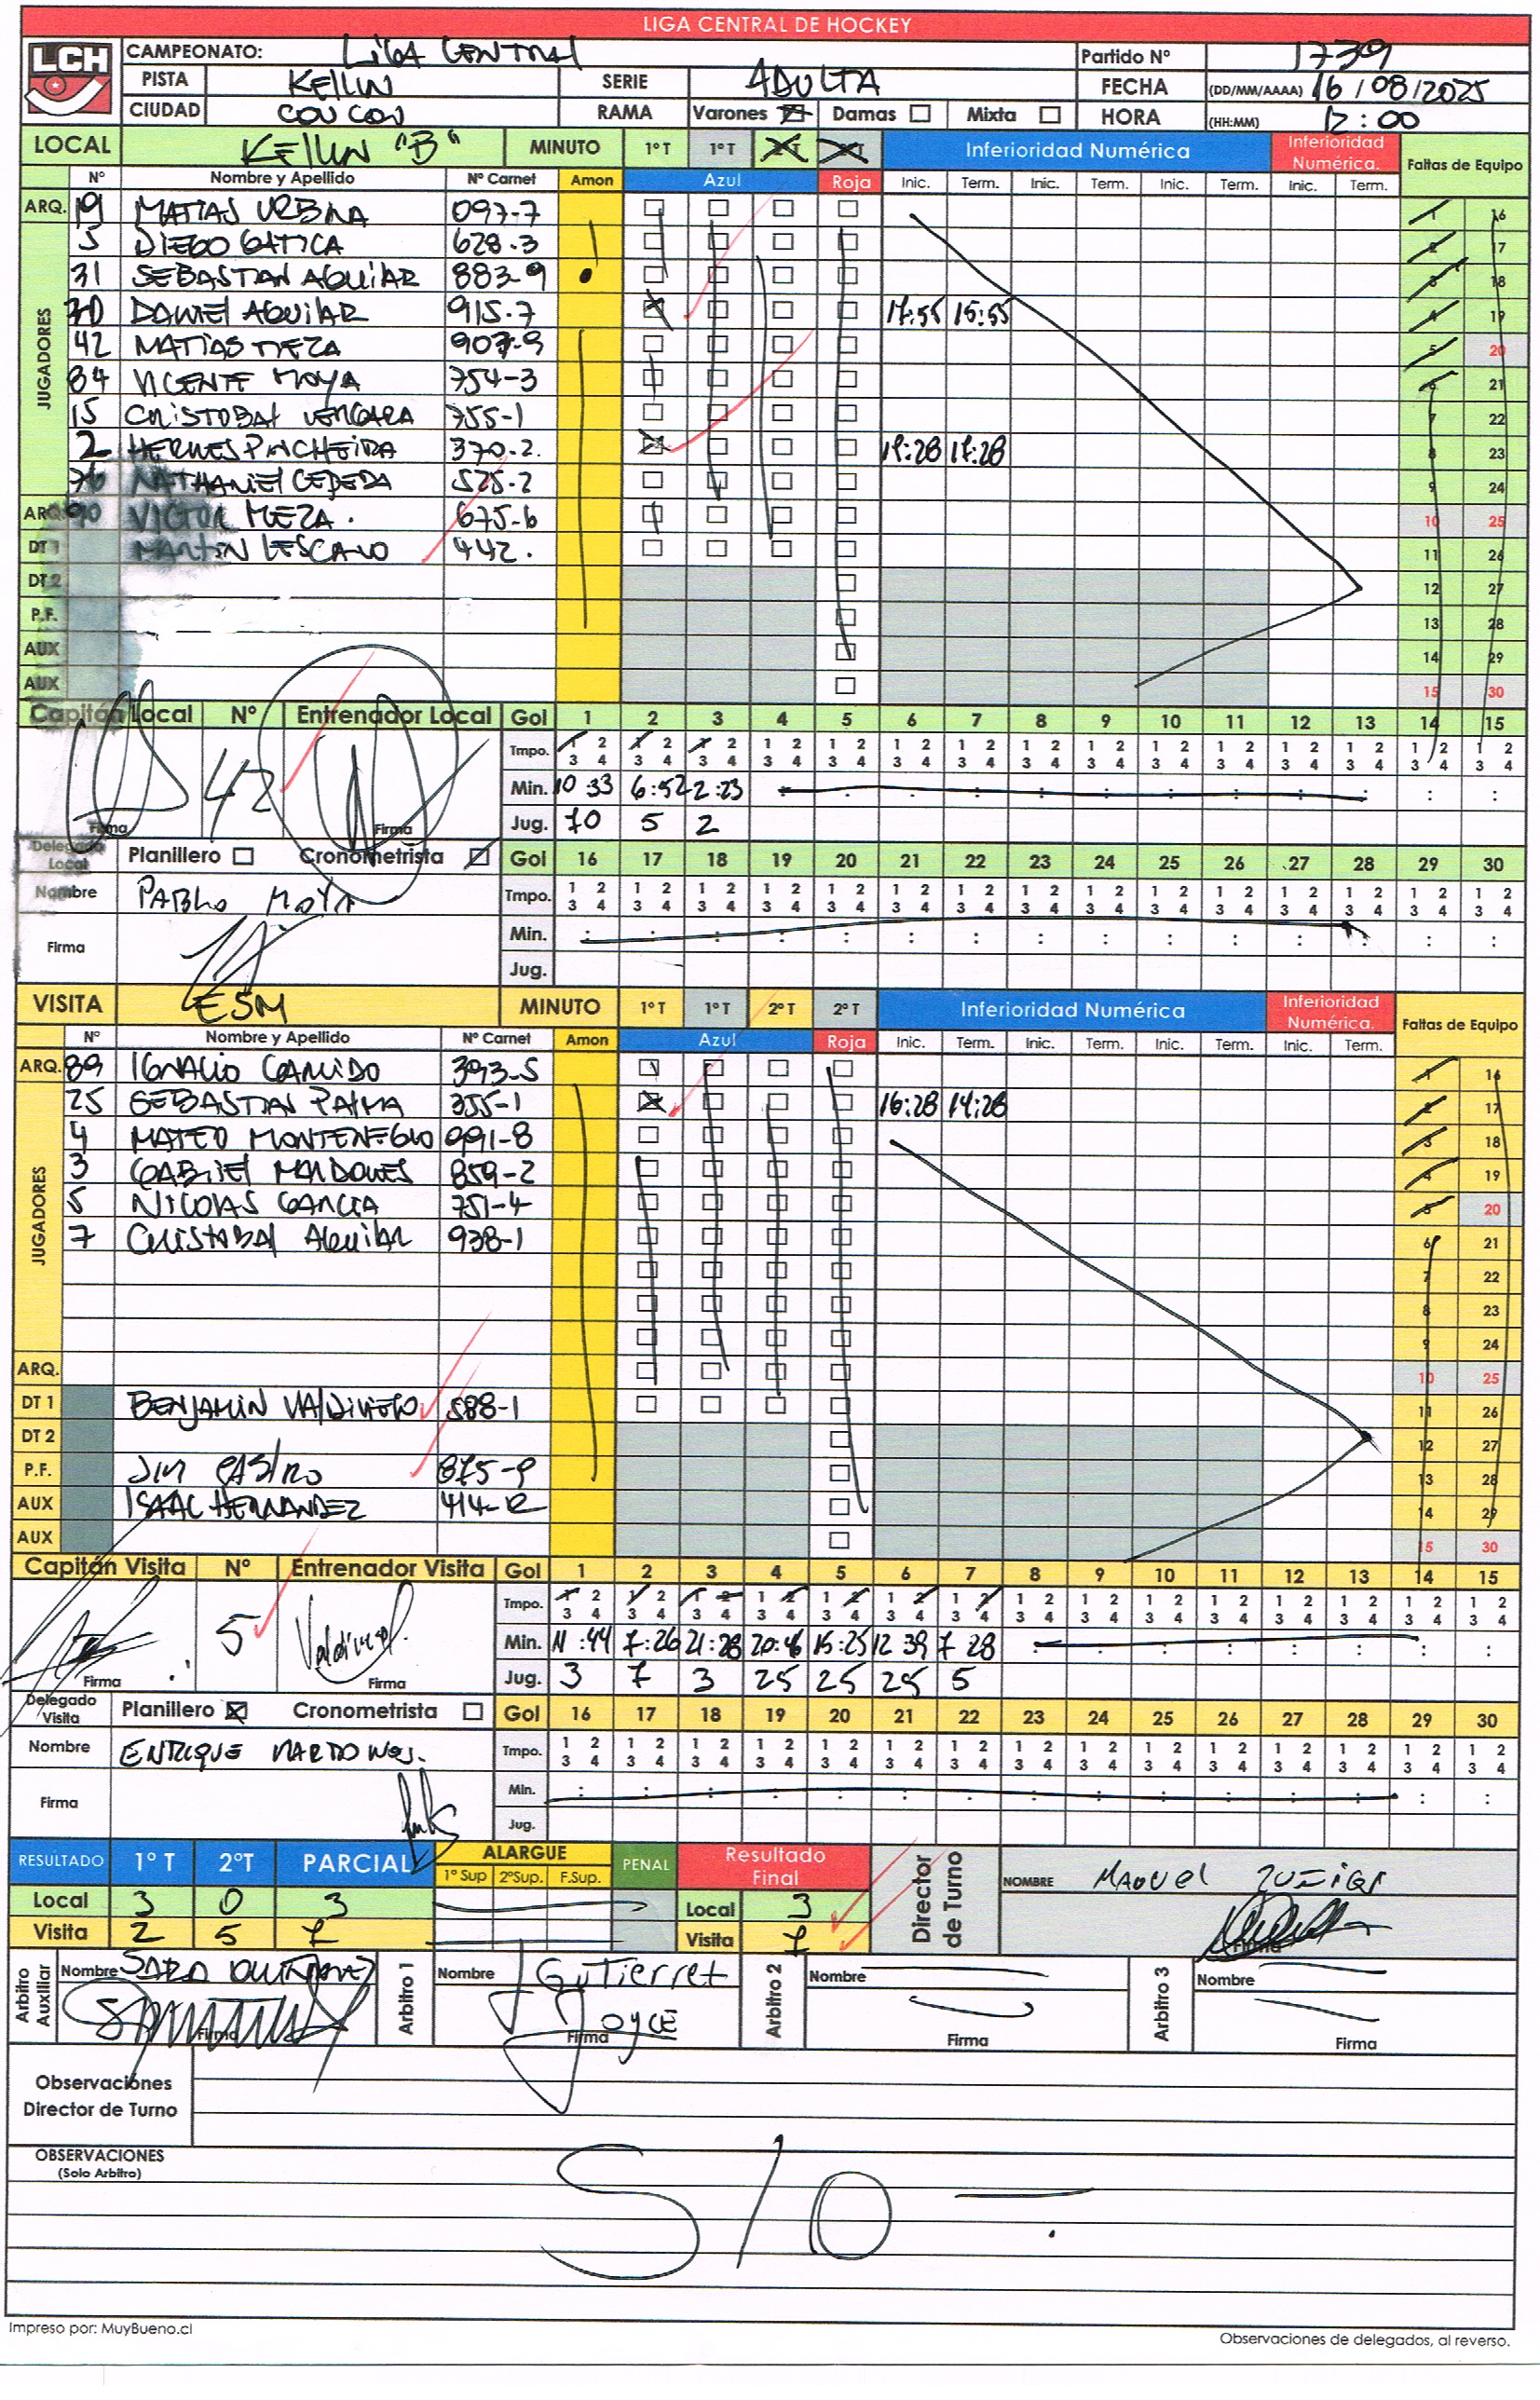 LIGA CENTRAL DE HOCKEY
LCH
CAMPEONATO: LIGA CENTRAL Partido Nº 1739
PISTA KELLUN SERIE ADULTA FECHA (DD/MM/AAAA) 16/08/2025
CIUDAD CON CON RAMA Varones Damas Mixta HORA (HH:MM) 12:00
LOCAL KELLUN "B" MINUTO 1º T 1º T Inferioridad Numérica Inferioridad Numérica. Faltas de Equipo
Nº Nombre y Apellido Nº Carnet Amon Azul Roja Inic. Term. Inic. Term. Inic. Term. Inic. Term.
ARQ. 19 MATIAS URBINA 097-7 1 16
JUGADORES
5 DIEGO GATICA 628-3 2 17
31 SEBASTIAN AGUILAR 883-9 3 18
70 DANIEL AGUILAR 915-7 17:55 15:55 4 19
42 MATIAS MEZA 907-9 5 20
84 VICENTE MOYA 754-3 6 21
15 CRISTOBAL VERGARA 755-1 7 22
2 HERMES PINCHEIRA 370-2. 19:28 17:28 8 23
76 NATHANIEL CEPEDA 525-2 9 24
ARQ 90 VICTOR MEZA. 675-6 10 25
DT 1 MARTIN LESCANO 442. 11 26
DT 2 12 27
P.F. 13 28
AUX 14 29
AUX 15 30
Capitán Local Nº Entrenador Local Gol 1 2 3 4 5 6 7 8 9 10 11 12 13 14 15
42 Tmpo. 1 2 3 4 1 2 3 4 1 2 3 4 1 2 3 4 1 2 3 4 1 2 3 4 1 2 3 4 1 2 3 4 1 2 3 4 1 2 3 4 1 2 3 4 1 2 3 4 1 2 3 4 1 2 3 4 1 2 3 4
Min. 10 33 6:52 2:23
Firma Firma Jug. 70 5 2
Delegado Local Planillero Cronometrista Gol 16 17 18 19 20 21 22 23 24 25 26 27 28 29 30
Nombre PABLO MOYA Tmpo. 1 2 3 4 1 2 3 4 1 2 3 4 1 2 3 4 1 2 3 4 1 2 3 4 1 2 3 4 1 2 3 4 1 2 3 4 1 2 3 4 1 2 3 4 1 2 3 4 1 2 3 4 1 2 3 4 1 2 3 4
Firma Min.
Jug.
VISITA ESM MINUTO 1º T 1º T 2º T 2º T Inferioridad Numérica Inferioridad Numérica. Faltas de Equipo
Nº Nombre y Apellido Nº Carnet Amon Azul Roja Inic. Term. Inic. Term. Inic. Term. Inic. Term.
ARQ. 89 IGNACIO GARRIDO 393-5 1 16
JUGADORES
25 SEBASTIAN PALMA 355-1 16:28 14:28 2 17
4 MATEO MONTENEGRO 991-8 3 18
3 GABRIEL MARDONES 859-2 4 19
5 NICOLAS GARCIA 751-4 5 20
7 CRISTOBAL AGUILAR 938-1 6 21
7 22
8 23
9 24
ARQ. 10 25
DT 1 BENJAMIN VALDIVIESO 588-1 11 26
DT 2 12 27
P.F. JIM CASTRO 875-9 13 28
AUX ISAAC HERNANDEZ 414-K 14 29
AUX 15 30
Capitán Visita Nº Entrenador Visita Gol 1 2 3 4 5 6 7 8 9 10 11 12 13 14 15
5 Tmpo. 1 2 3 4 1 2 3 4 1 2 3 4 1 2 3 4 1 2 3 4 1 2 3 4 1 2 3 4 1 2 3 4 1 2 3 4 1 2 3 4 1 2 3 4 1 2 3 4 1 2 3 4 1 2 3 4 1 2 3 4
Min. 11:44 7:26 21:28 20:46 15:25 12 39 7 28
Firma Firma Jug. 3 7 3 25 25 25 5
Delegado Visita Planillero Cronometrista Gol 16 17 18 19 20 21 22 23 24 25 26 27 28 29 30
Nombre ENRIQUE MARDONES. Tmpo. 1 2 3 4 1 2 3 4 1 2 3 4 1 2 3 4 1 2 3 4 1 2 3 4 1 2 3 4 1 2 3 4 1 2 3 4 1 2 3 4 1 2 3 4 1 2 3 4 1 2 3 4 1 2 3 4 1 2 3 4
Firma Min.
Jug.
RESULTADO 1º T 2ºT PARCIAL ALARGUE 1º Sup 2ºSup. F.Sup. PENAL Resultado Final Director de Turno NOMBRE MANUEL ZUÑIGA
Local 3 0 3 Local 3
Visita 2 5 7 Visita 7 Firma
Arbitro Auxiliar Nombre SARA Arbitro 1 Nombre GUTIERREZ JOYCE Arbitro 2 Nombre Arbitro 3 Nombre
Firma Firma Firma Firma
Observaciones
Director de Turno
OBSERVACIONES
(Solo Arbitro)
S/O
Impreso por: MuyBueno.cl
Observaciones de delegados, al reverso.